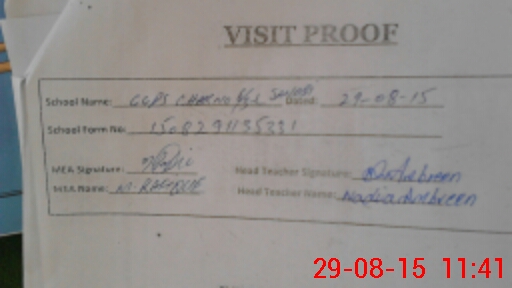 VISIT PROOF
School Name: GGPS CHAK NO Dated: 29-08-15
School Form No: 1508291135331
MEA Signature: Head Teacher Signature: Nadia Ambreen
MEA Name: M. RAFIQUE Head Teacher Name: Nadia Ambreen
29-08-15 11:41